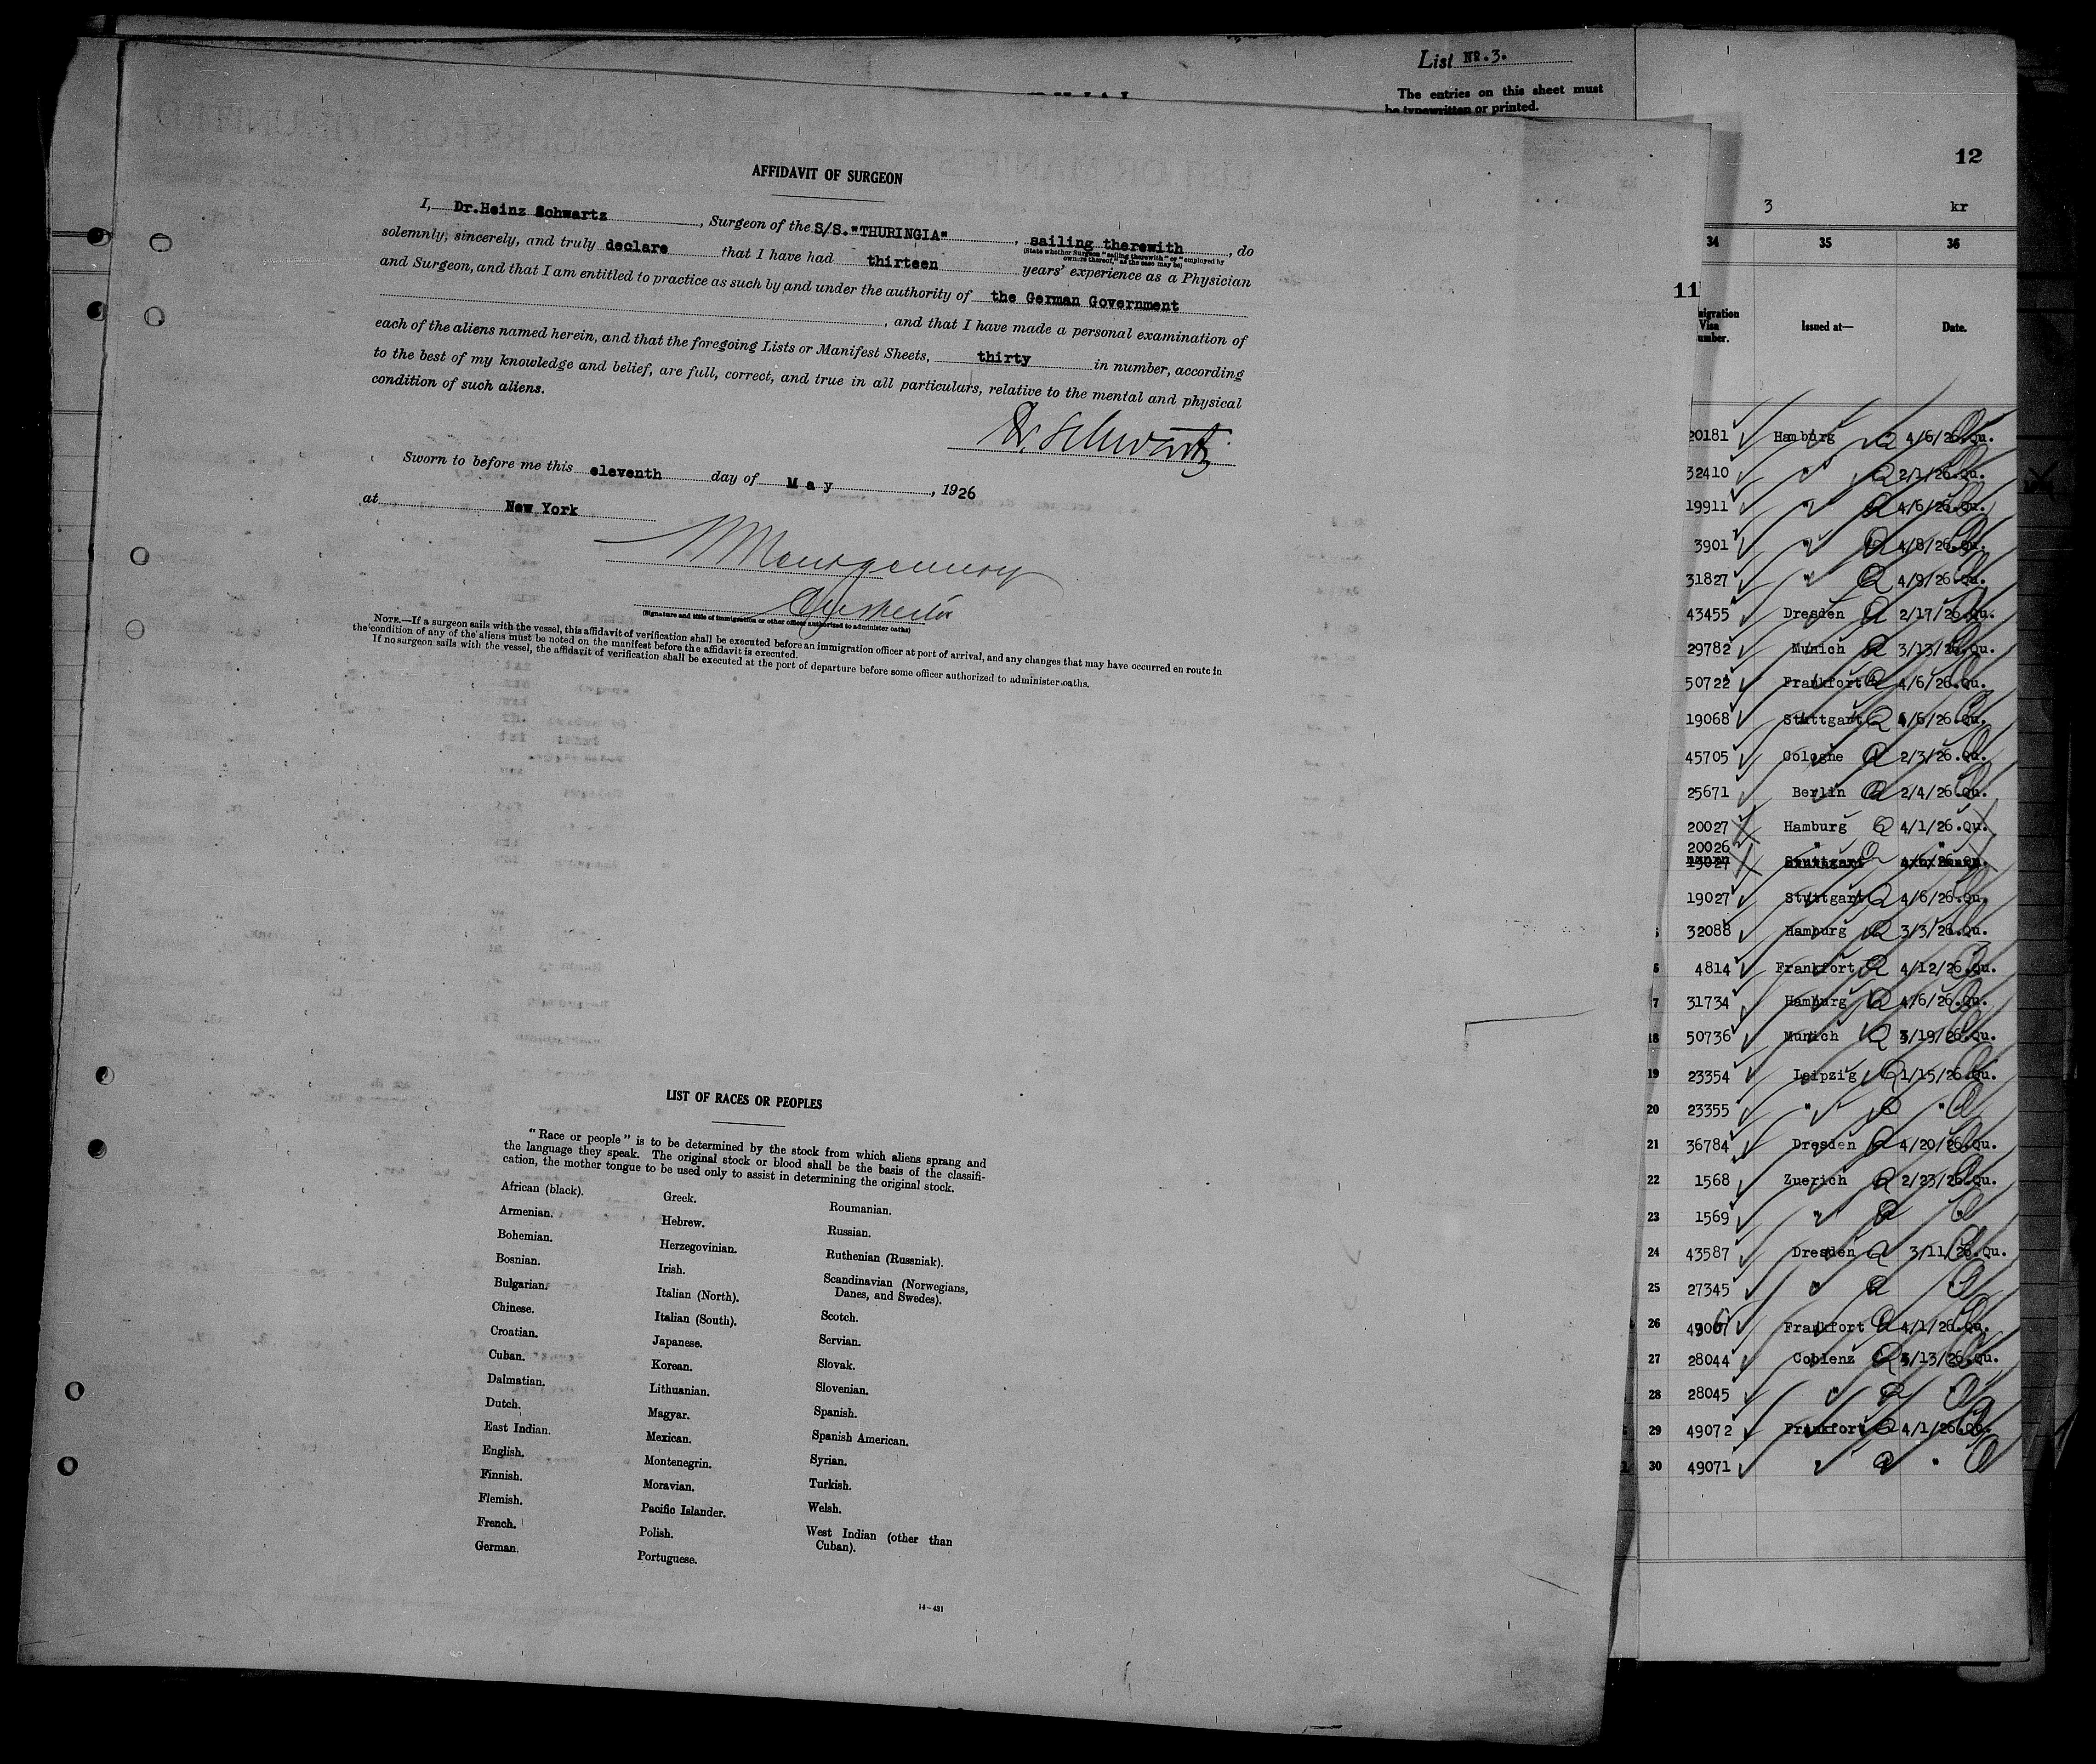 List No.3.
The entries on this sheet must
be typewritten or printed.
AFFIDAVIT OF SURGEON
I, Dr.Heinz Schwartz, Surgeon of the S/S."THURINGIA", sailing therewith, do
(State whether Surgeon "sailing therewith" or "employed by
owners thereof," as the case may be)
solemnly, sincerely, and truly declare that I have had thirteen years' experience as a Physician
and Surgeon, and that I am entitled to practice as such by and under the authority of the German Government
, and that I have made a personal examination of
each of the aliens named herein, and that the foregoing Lists or Manifest Sheets, thirty in number, according
to the best of my knowledge and belief, are full, correct, and true in all particulars, relative to the mental and physical
condition of such aliens.
Dr Schwartz
Sworn to before me this eleventh day of May, 1926
at New York
Montgomery
Inspector
(Signature and title of immigration or other officer authorized to administer oaths)
NOTE.—If a surgeon sails with the vessel, this affidavit of verification shall be executed before an immigration officer at port of arrival, and any changes that may have occurred en route in
the condition of any of the aliens must be noted on the manifest before the affidavit is executed.
If no surgeon sails with the vessel, the affidavit of verification shall be executed at the port of departure before some officer authorized to administer oaths.
LIST OF RACES OR PEOPLES
"Race or people" is to be determined by the stock from which aliens sprang and
the language they speak. The original stock or blood shall be the basis of the classifi-
cation, the mother tongue to be used only to assist in determining the original stock.
African (black).
Armenian.
Bohemian.
Bosnian.
Bulgarian.
Chinese.
Croatian.
Cuban.
Dalmatian.
Dutch.
East Indian.
English.
Finnish.
Flemish.
French.
German.
Greek.
Hebrew.
Herzegovinian.
Irish.
Italian (North).
Italian (South).
Japanese.
Korean.
Lithuanian.
Magyar.
Mexican.
Montenegrin.
Moravian.
Pacific Islander.
Polish.
Portuguese.
Roumanian.
Russian.
Ruthenian (Russniak).
Scandinavian (Norwegians,
Danes, and Swedes).
Scotch.
Servian.
Slovak.
Slovenian.
Spanish.
Spanish American.
Syrian.
Turkish.
Welsh.
West Indian (other than
Cuban).
14—431
12
3 kr
34 35 36
11
migration
Visa
umber.
Issued at—
Date.
20181 Hamburg 4/6/26.Qu.
32410 " 2/1/26.Qu.
19911 " 4/6/26.Qu.
3901 " 4/8/26.Qu.
31827 " 4/9/26.Qu.
43455 Dresden 2/17/26.Qu.
29782 Munich 3/13/26.Qu.
50722 Frankfort 4/6/26.Qu.
19068 Stuttgart 4/6/26.Qu.
45705 Cologne 2/3/26.Qu.
25671 Berlin 2/4/26.Qu.
20027 Hamburg 4/1/26.Qu.
20026 " "
19027 Stuttgart 4/6/26.Qu.
32088 Hamburg 3/3/26.Qu.
6 4814 Frankfort 4/12/26.Qu.
7 31734 Hamburg 4/6/26.Qu.
18 50736 Munich 3/19/26.Qu.
19 23354 Leipzig 1/15/26.Qu.
20 23355 " "
21 36784 Dresden 4/20/26.Qu.
22 1568 Zuerich 2/23/26.Qu.
23 1569 " "
24 43587 Dresden 3/11/26.Qu.
25 27345 " "
26 Frankfort 4/1/26.Qu.
27 28044 Coblenz 3/13/26.Qu.
28 28045 " "
29 49072 Frankfort 4/1/26.Qu.
30 49071 " "